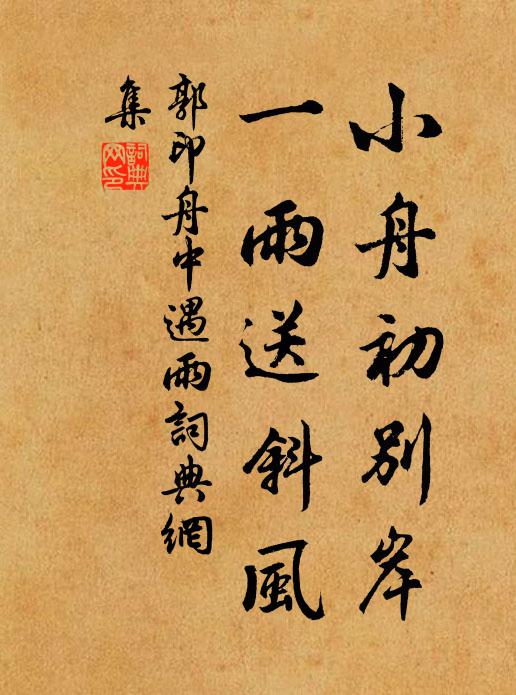 小舟初別岸
一雨送斜風
郭印舟中遇雨詞典網
集
詞典網印